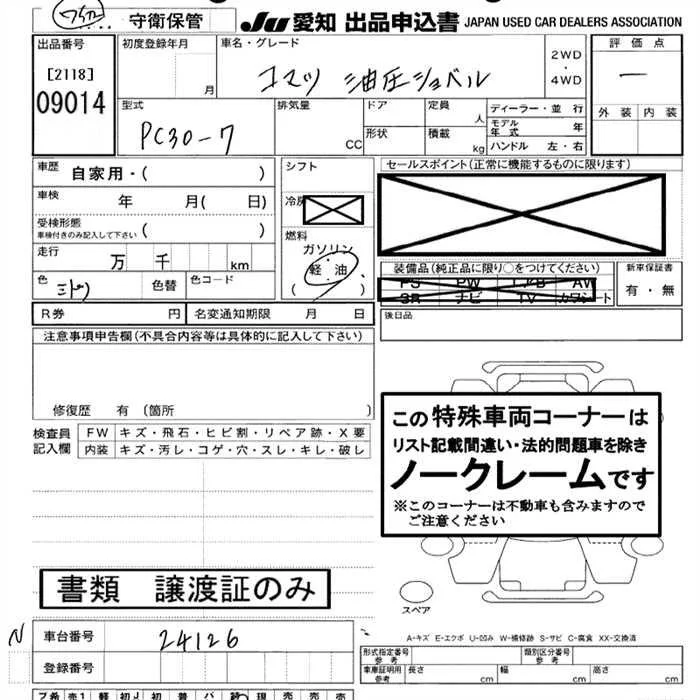 守衛保管 Ju 愛知 出品申込書 JAPAN USED CAR DEALERS ASSOCIATION
出品番号 初度登録年月 車名・グレード 評価点
[2118] 月 コマツ 油圧ショベル 2WD・4WD ー
09014 外装 内装
型式 排気量 ドア 定員 ディーラー・並行
人 モデル年式 年
PC30-7 CC 形状 積載 kg ハンドル 左・右
車歴 自家用・( ) シフト セールスポイント(正常に機能するものに限ります)
車検 年 月( 日) 冷房
受検形態 車検付きのみ記入して下さい ( ) 燃料
走行 万 千 km ガソリン 装備品(純正品に限り○をつけてください) 新車保証書
色 ミドリ 色替 色コード ( 軽油 ) PS PW エアB AW 有・無
SR ナビ TV カワシート
R券 円 名変通知期限 月 日 後日品
注意事項申告欄(不具合内容等は具体的に記入して下さい)
修復歴 有 (箇所 )
この特殊車両コーナーは
リスト記載間違い・法的問題車を除き
ノークレームです
※このコーナーは不動車も含みますので
ご注意ください
検査員記入欄 FW キズ・飛石・ヒビ割・リペア跡・X要
内装 キズ・汚し・コゲ・穴・スレ・キレ・破し
書類 譲渡証のみ
スペア
A-キズ E-エクボ U-凹み W-補修跡 S-サビ C-腐食 XX-交換済
N 車台番号 24126
登録番号
形式指定番号 参考 類別区分番号 参考
車庫証明用 参考 長さ cm 幅 cm 高さ cm